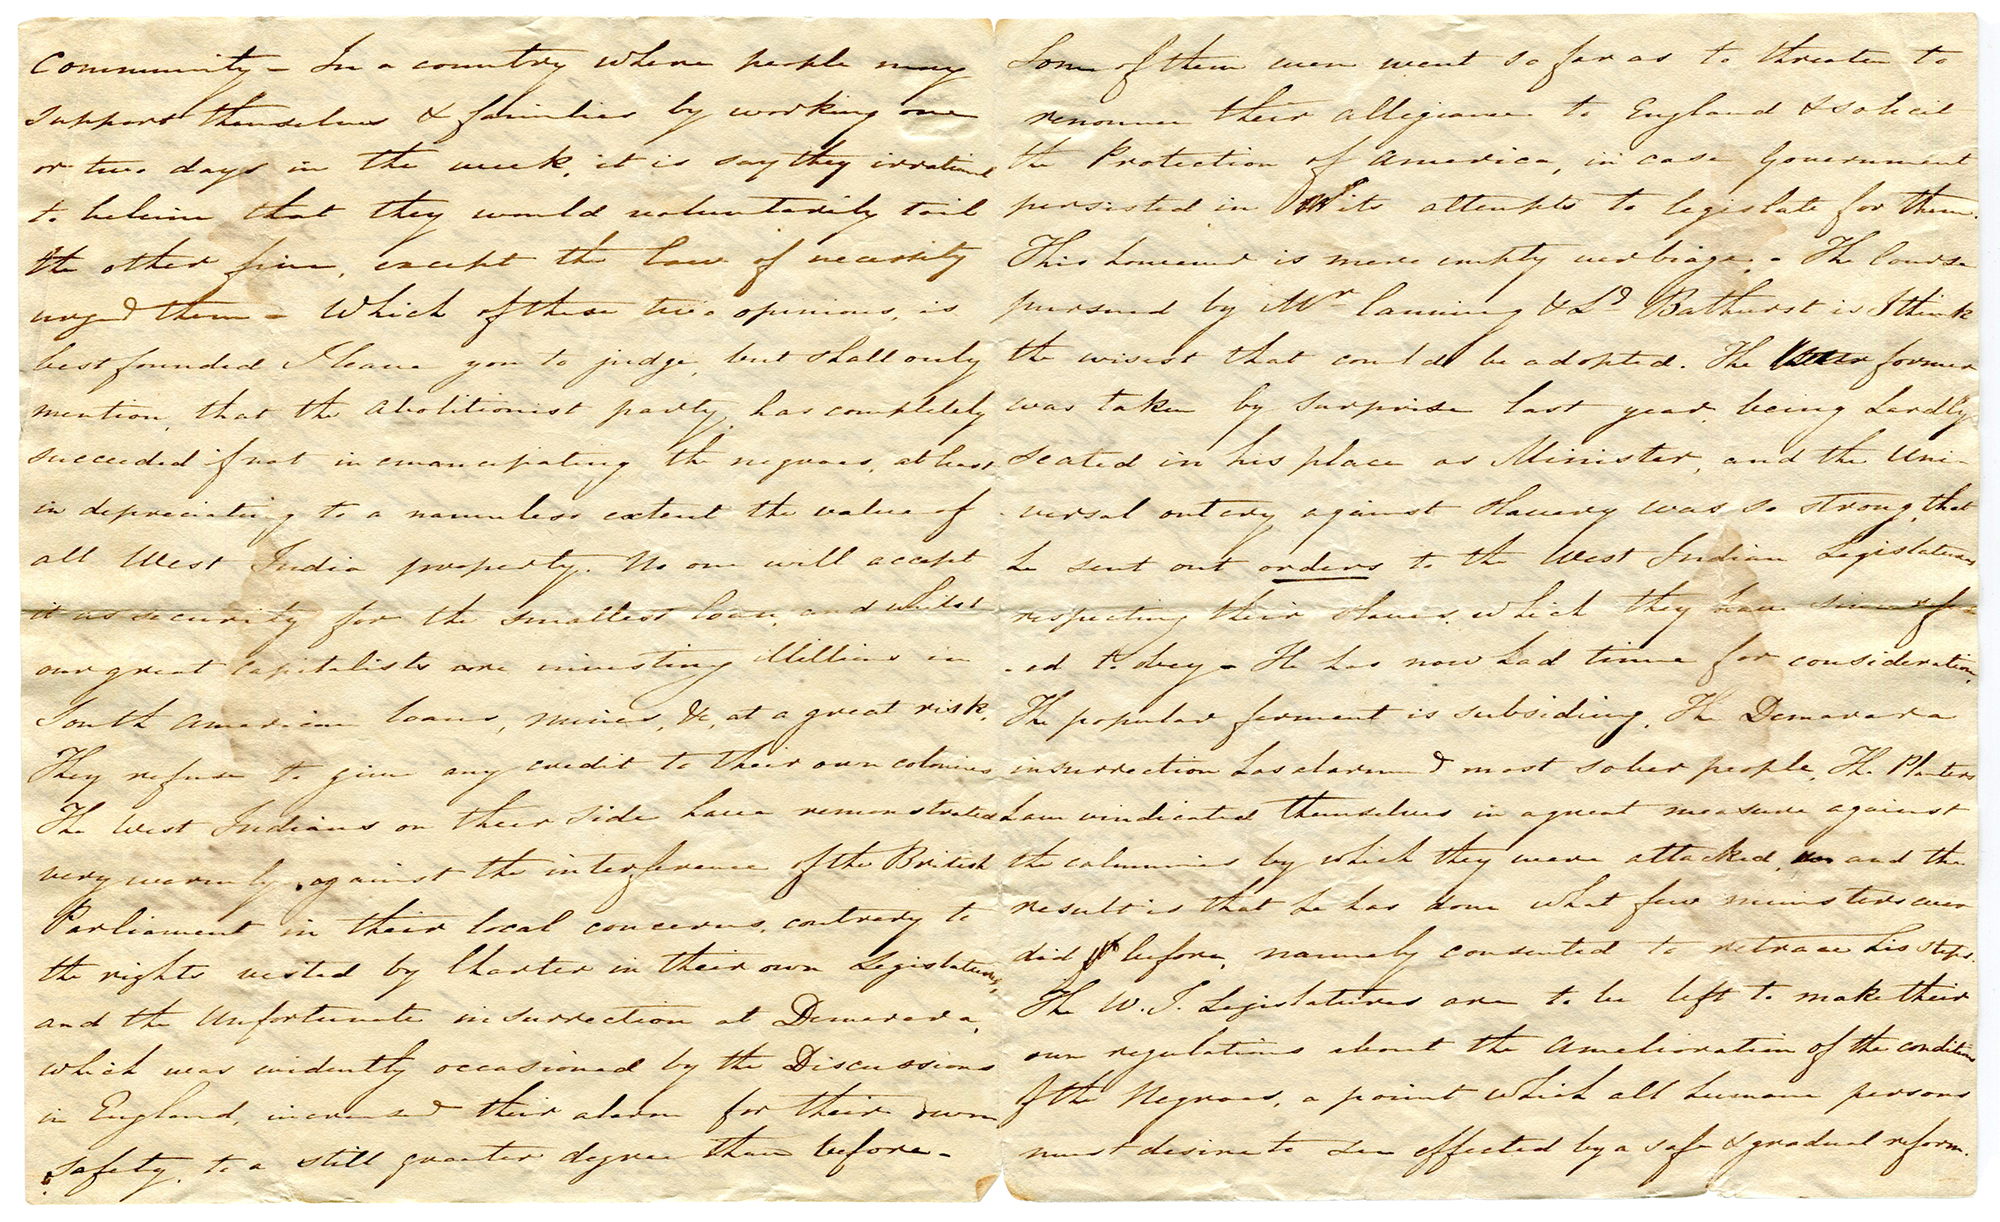 Community - In a country where people may
support themselves & families by working one
or two days in the week, it is say they irrational
to believe that they would voluntarily toil
the other five, except the law of necessity
urged them - Which of these two opinions, is
best founded I leave you to judge, but shall only
mention, that the Abolitionist party, has completely
succeeded if not in emancipating the negroes, at least
in depreciating to a nameless extent the value of
all West India property. No one will accept
it as security for the smallest loan, and whilst
our great capitalists are investing Millions in
South American loans, mines, &c, at a great risk,
They refuse to give any credit to their own colonies
The West Indians on their side have remonstrated
very warmly, against the interference of the British
Parliament in their local concerns, contrary to
the rights vested by Charter in their own Legislatures,
and the Unfortunate insurrection at Demerara,
which was evidently occasioned by the Discussions
in England, increased their alarm for their own
safety, to a still greater degree than before -
Some of them even went so far as to threaten to
renounce their Allegiance to England & solicit
the Protection of America, in case Government
persisted in its attempts to legislate for them.
This however is mere empty verbiage. - The Course
pursued by Mr Canning & Ld Bathurst is I think
the wisest that could be adopted. The former
was taken by surprise last year, being hardly
seated in his place as Minister, and the Uni-
-versal outcry against Slavery was so strong, that
he sent out orders to the West Indian Legislatures
respecting their Slaves, which they have since refus
-ed to obey - He has now had time for consideration,
The popular ferment is subsiding, The Demarara
insurrection has alarmed most sober people, The Planters
have vindicated themselves in a great measure against
the calumnies by which they were attacked, and the
result is that he has done what few ministers ever
did before, namely consented to retrace his steps.
The W. I. Legislatures are to be left to make their
own regulations about the Amelioration of the conditions
of the Negroes, a point which all humane persons
must desire to see effected by a safe & gradual reform.